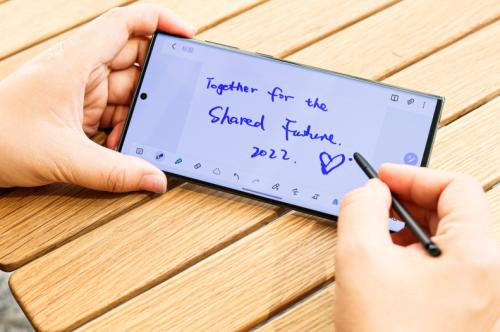 标题
Together for the
Shared Future.
2022.